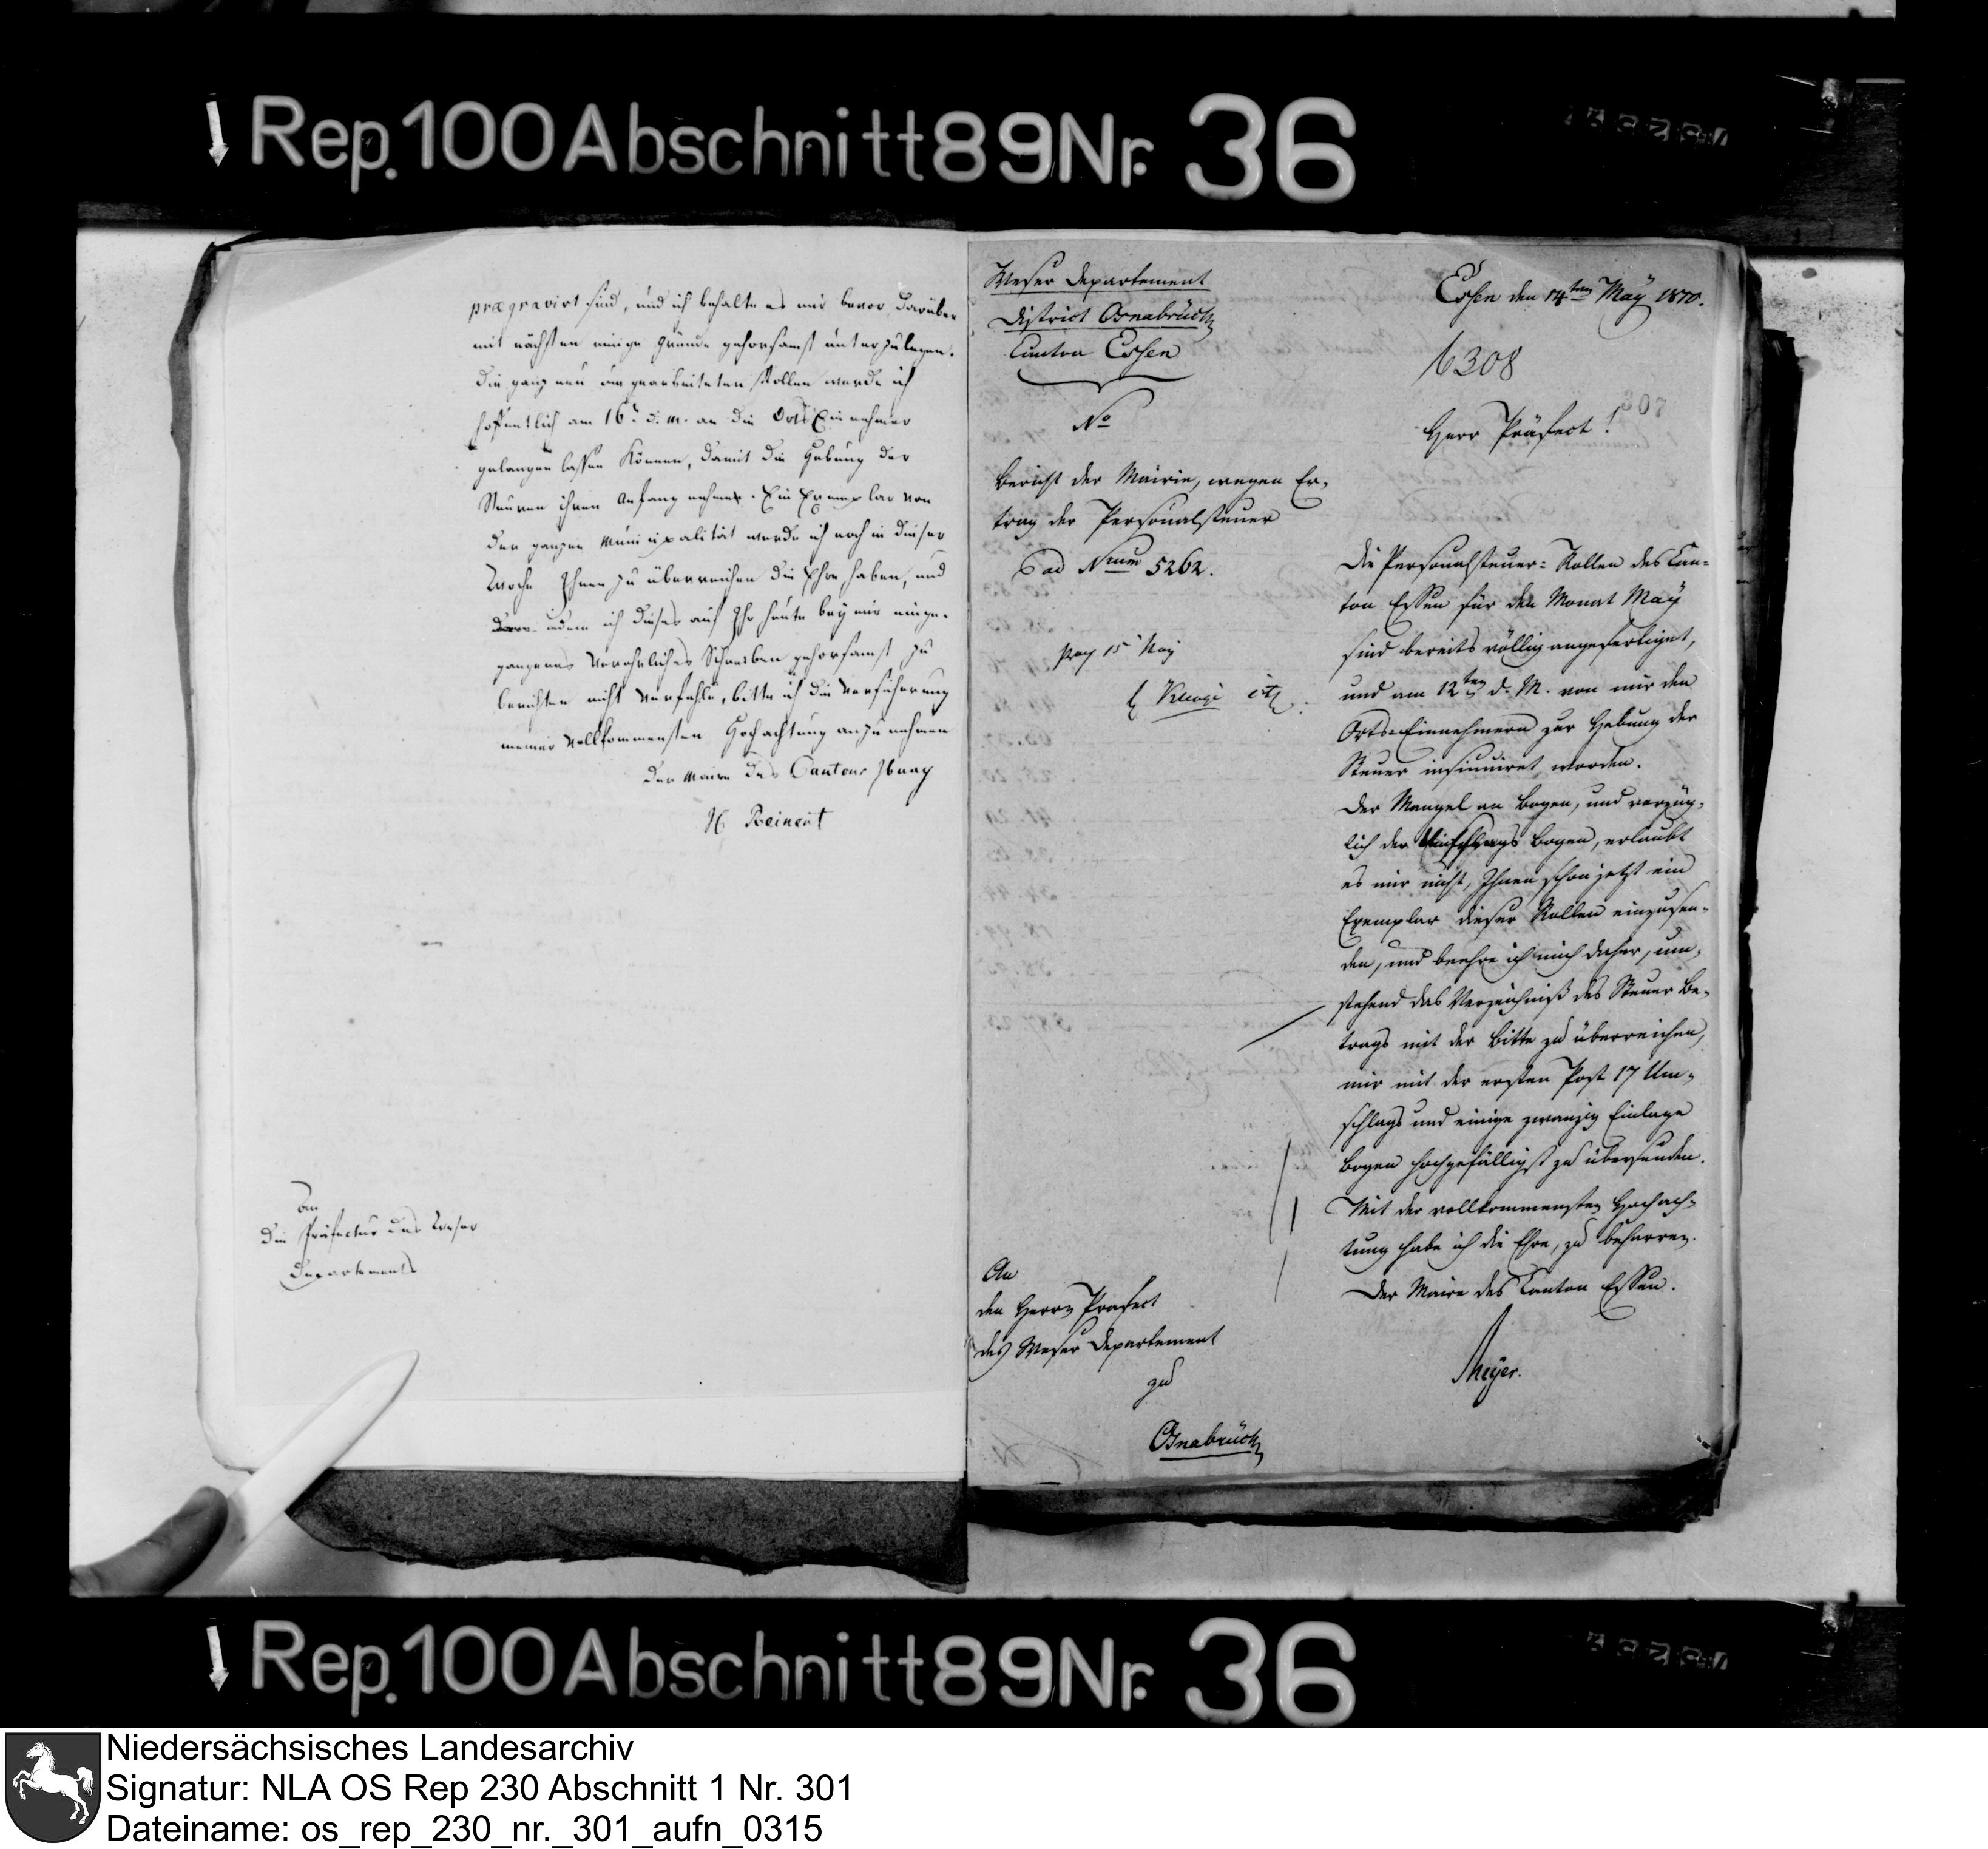 Rep.100 Abschnitt 89 Nr. 36
prægravirt sind, und ich behalte es mir bevor darüber
mit nächsten einige Gründe gehorsamst unterzulegen.
Die ganz neu um gearbeiteten Rollen werde ich
hoffentlich am 16t d. M. an die Orts Einnehmer
gelangen lassen können, damit die Hebung der
Steuern ihren Anfang nehme. Ein Exemplar von
der ganzen Municipalität werde ich noch in dieser
Woche Ihnen zu überreichen die Ehre haben, und
indem ich dieses auf Ihr heute bey mir einge-
gangenes verehrliches Schreiben gehorsamst zu
berichten nicht verfehle, bitte ich die Versicherung
meiner vollkommensten Hochachtung anzunehmen
Der Maire des Cantons Iburg
Reinert
An
Die Präfectur des Weser
Departements
Weser Departement
District Osnabrück
Canton Essen
No
Bericht der Mairie, wegen Er-
trag der Personalsteuer
ad Nrum 5262.
15 May
Essen den 14ten May 1810.
6308
307
Herr Präfect!
Die Personalsteuer-Rollen des Can-
ton Essen für den Monat May
sind bereits völlig angefertiget,
und am 12ten d. M. von mir den
Orts-Einnehmern zur Hebung der
Steuer insinuiret worden.
Der Mangel an Bogen, und vorzüg-
lich der Umschlags Bogen, erlaubt
es mir nicht, Ihnen schon jetzt ein
Exemplar dieser Rollen einzusen-
den, und beehre ich mich daher, um-
stehend das Verzeichniß des Steuer Be-
trags mit der Bitte zu überreichen,
mir mit der ersten Post 17 Um-
schlags und einige zwanzig Einlage
Bogen hochgefälligst zu übersenden.
Mit der vollkommensten Hochach-
tung habe ich die Ehre, zu beharren.
Der Maire des Canton Essen.
Meyer.
An
den Herrn Präfect
des Weser Departement
zu
Osnabrück
Rep.100 Abschnitt 89 Nr. 36
Niedersächsisches Landesarchiv
Signatur: NLA OS Rep 230 Abschnitt 1 Nr. 301
Dateiname: os_rep_230_nr._301_aufn_0315